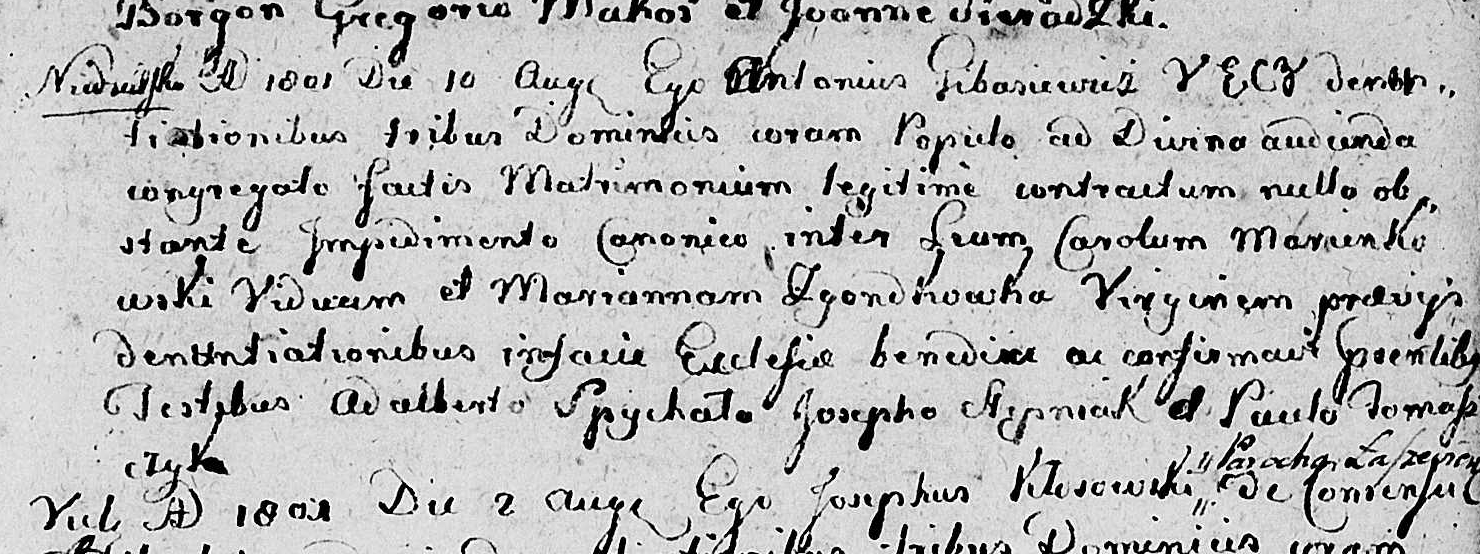 Borgon Gregorio Makos et Joanne Sieradzki.
A D 1801 Die 10 Augi Ego Antonius Gibasiewicz V E C Z denun„
tiationibus tribus Dominicis coram Populo ad Divina audienda
congregato factis Matrimonium legitime contractum nullo ob„
stante Impedimento Canonico inter Carolum Marcinko
wski Viduum et Mariannam Zgondkowka Virginem prævijs
denuntiationibus in facie Ecclesiæ benedixi ac confirmavi
Testibus Adalberto Spychała Josepho Stępniak et Paulo Tomasz
czyk
Parocho
A D 1801 Die 2 Augi Ego Josephus Kłosowski de Consensu
tribus Dominicis coram